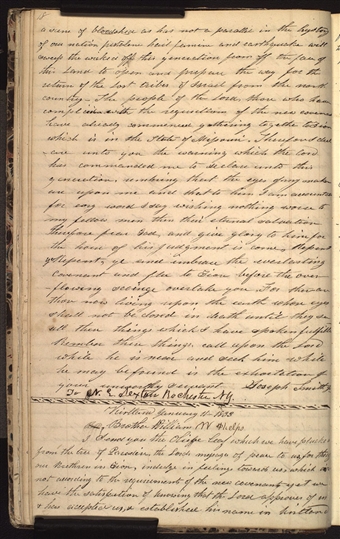 a scene of bloodshed as has not a parallel in the hystory
of our nation pestalence hail famine and earthquake will
sweep the wicked off this generation from off the face of
this Land to open and prepare the way for the
return of the lost tribes of Israel from the north
country. The people of the Lord, those who have
complied with the requisitions of the new covenant
have already commenced gathering together to Zion
which is in the State of Missouri. Therefore I declare
unto you the warning which the Lord
has commanded me to declare unto this
generation, remembring that the eyes of my maker
are upon me and that to him I am accountable
for evry word I say wishing nothing worse to
my fellow men then their eternal salvation
therefore fear God, and give glory to him for
the hour of his judgment is come, Repent
ye Repent, ye and imbrace the everlasting
covenant and flee to Zion before the over
flowing scourge overtake you. For there are
those now living upon the earth whose eyes
shall not be closed in death until they see
all these things which I have spoken fulfilled
Remember these things, call upon the Lord
while he is near and seek him while
he may be found is the exhortation of
your unworthy servant Joseph Smith Jr
To N. E. Sexton Rochester N.Y.
Kirtland January 11- 1833
Brother William W Phelps
I Send you the Olieve leaf which we have plucked
from the tree of Paradise, the Lords message of peace to us, for though
our Brethren in Zion, indulge in feelings towards us, which are
not according to the requirements of the new covenant yet we
have the satisfaction of knowing that the Lord approves of us
& has accepted us, & established his name in kirtland